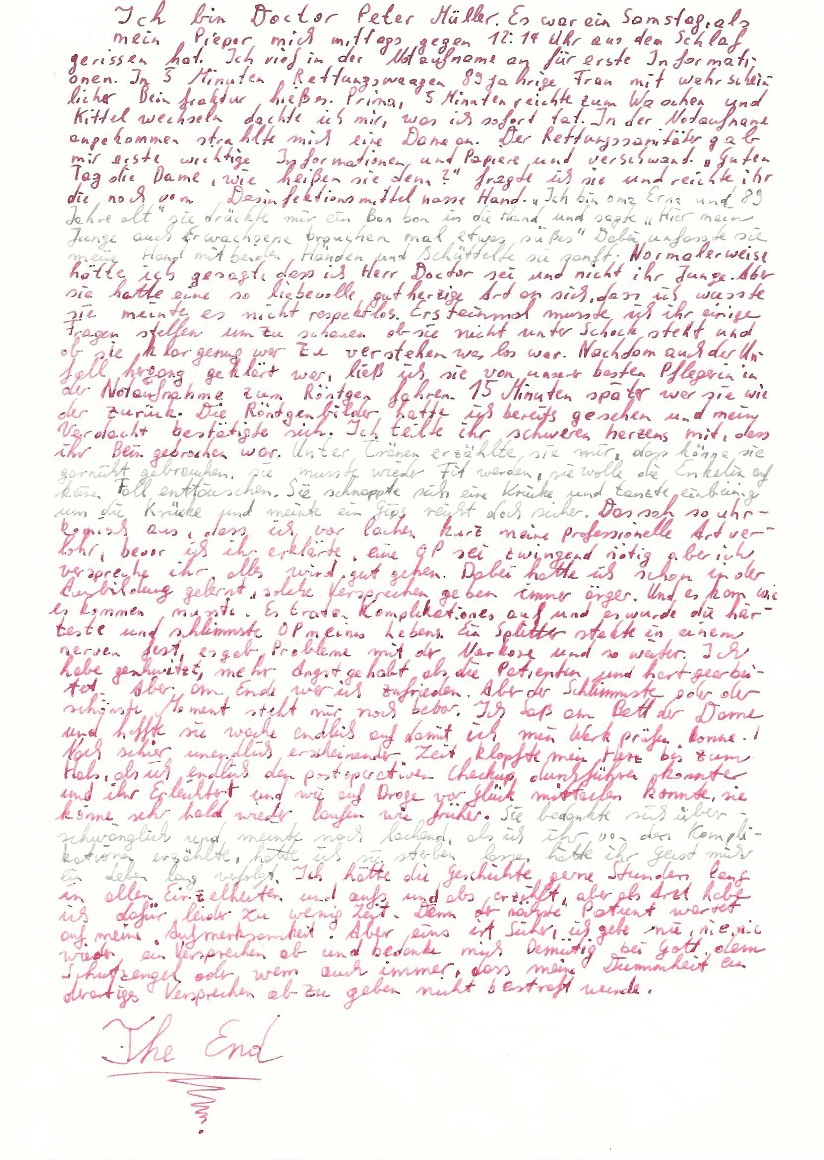 Ich bin Doctor Peter Müller. Es war ein Samstag, als
mein Pieper mich mittags gegen 12:14 Uhr aus dem Schlaf
gerissen hat. Ich rief in der Notaufname an für erste Informati-
onen. In 5 Minuten Rettungswaagen 89 jährige Frau mit wahrschein
licher Bein fraktur hieß es. Prima, 5 Minuten reichte zum Waschen und
Kittel wechseln dachte ich mir, was ich sofort tat. In der Notaufname
angekommen strahlte mich eine Dame an. Der Rettungssanitäter gab
mir erste wichtige Informationen und Papiere und verschwand. „Guten
Tag die Dame, wie heißen sie denn?" fragte ich sie und reichte ihr
die noch vom Desinfektionsmittel nasse Hand. „Ich bin oma Erna und 89
Jahre alt" sie drückte mir ein Bon bon in die Hand und sagte „Hier mein
Junge auch Erwachsene brauchen mal etwas süßes" Dabei umfasste sie
meine Hand mit beiden Händen und Schüttelte sie sanft. Normalerweise
hätte ich gesagt, dass ich Herr Doctor sei und nicht ihr Junge. Aber
sie hatte eine so liebevolle, gutherzige Art an sich, dass ich wusste
sie meinte es nicht respektlos. Ersteinmal musste ich ihr einige
Fragen stellen um zu schauen ob sie nicht unter Schock steht und
ob sie klar genug war zu verstehen was los war. Nachdem auch der Un-
fall hergang geklärt war, ließ ich sie von unserer besten Pflegerin in
der Notaufnahme zum Röntgen fahren. 15 Minuten später war sie wie
der zurück. Die Röntgenbilder hatte ich bereits gesehen und mein
Verdacht bestätigte sich. Ich teilte ihr schweren herzens mit, dass
ihr Bein gebrochen war. Unter Tränen erzählte sie mir, das könne sie
garnicht gebrauchen, sie musste wieder Fit werden, sie wolle die Enkelin auf
keinen Fall enttäuschen. Sie schnappte sich eine Krücke und tanzte einbeinig
um die Krücke und meinte ein Gips reicht doch sicher. Das sah so uhr-
komisch aus, dass ich vor lachen kurz meine Professionelle Art ver-
lohr, bevor ich ihr erklärte, eine OP sei zwingend nötig aber ich
verspreche ihr alles wird gut gehen. Dabei hatte ich schon in der
Ausbildung gelernt, solche Versprechen geben immer ärger. Und es kam wie
es kommen musste. Es traten Komplikationes auf und es wurde die här-
teste und schlimmste OP meines Lebens. Ein Splitter steckte in einem
nerven fest, es gab Probleme mit der Narkose und so weiter. Ich
habe geschwitzt, mehr Angst gehabt als die Patientin und hart gearbei-
tet. Aber am Ende war ich zufrieden. Aber der Schlimmste oder der
schönste Moment steht mir noch bevor. Ich saß am Bett der Dame
und hoffte sie wache endlich auf damit ich mein Werk prüfen konne.!
Nach schier unendlich erscheinender Zeit klopfte mein Herz bis zum
Hals, als ich endlich den postoperativen Checkup durchführen konnter
und ihr Erleichtert und wie auf Droge vor glück mitteilen konnte, sie
könne sehr bald wieder laufen wie früher. Sie bedankte sich über-
schwänglich und meinte noch lachend, als ich ihr von den Kompli-
kationen erzählte, hätte ich sie sterben lassen hätte ihr Geist mich
ein Leben lang verfolgt. Ich hätte die Geschichte gerne Stunden lang
in allen Einzelheiten und aufs und abs erzählt, aber als Arzt habe
ich dafür leider zu wenig Zeit. Denn der nächste Patient wartet
auf meine Aufmerksamkeit. Aber eins ist Sicher, ich gebe nie, nie, nie
wieder ein Versprechen ab und bedanke mich Demütig bei Gott, dem
Schutzengel oder wem auch immer, dass meine Dummheit ein
derartiges Versprechen ab zu geben nicht bestraft wurde.
The End